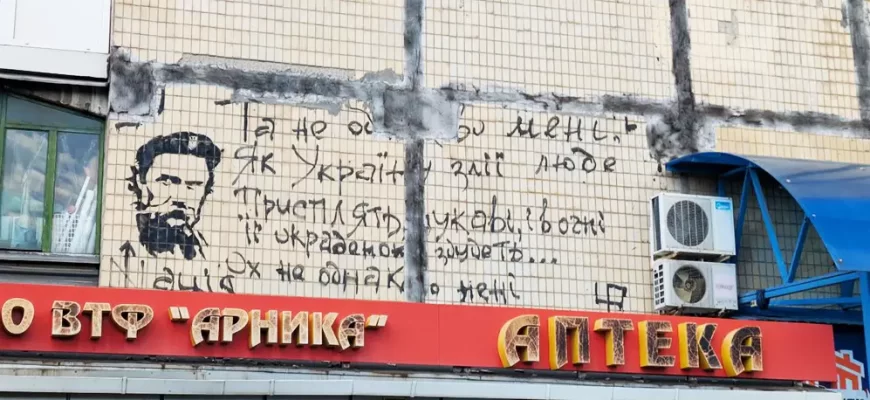 Та не мені,
Як Україну злії люде
Присплять, лукаві, і в огні
Її окраденую збудять...
Ох не однак мені
Нація
О ВТФ "АРНИКА" АПТЕКА